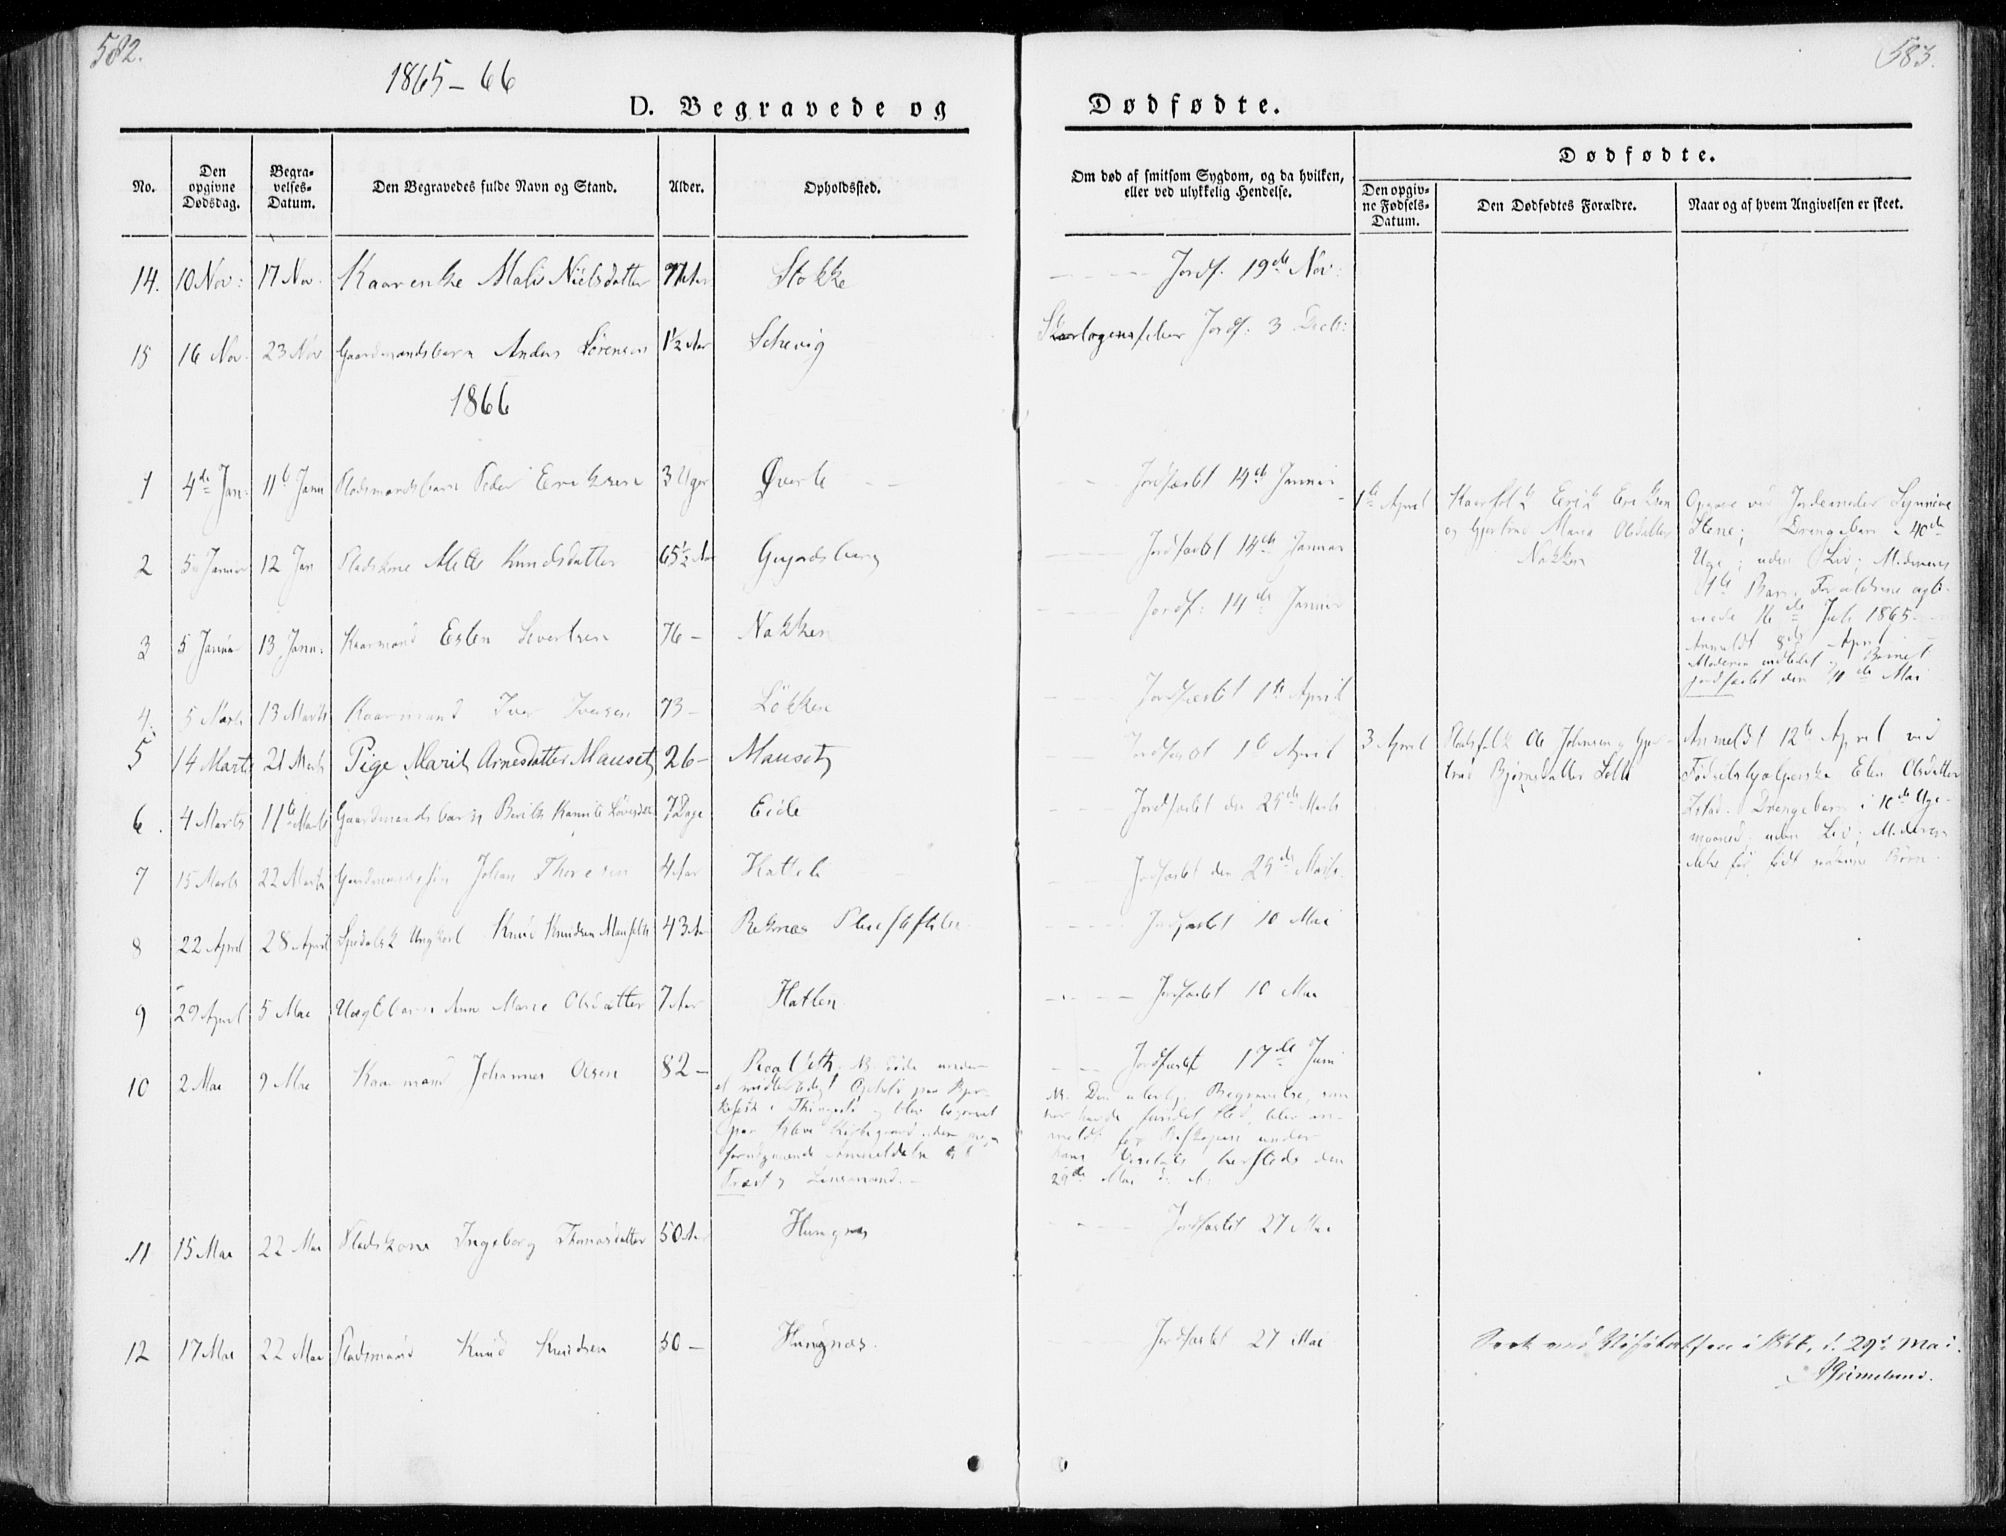 582.
583.
1865-66
D. Begravede og
Dødfødte.
No.
Den opgivne Dødsdag.
Begravelses-Datum.
Den Begravedes fulde Navn og Stand.
Alder.
Opholdssted.
Om død af smitsom Sygdom, og da hvilken, eller ved ulykkelig Hendelse.
Dødfødte.
Den opgivne Fødsels-Datum.
Den Dødfødtes Forældre.
Naar og af hvem Angivelsen er skeet.
14. 10 Nov: 17 Nov. Kaarenke Malis Nielsdatter Stokke Jordf. 19de Nov:
15 16 Nov. 23 Nov Gaardmandsbarn Anders Sørensen 1½ Aar Schevig Skarlagensfeber Jordf. 3 Decb:
1866
1 4de Jan: 11te Janu Pladsmandsbarn Peder Eriksen 3 Uger Jordfæstet 14de Januar
2 5te Januar 12 Jan Pladskone Mette Knudsdatter 65½ Aar Jordfæstet 14de Januar
3 5 Januar 13 Janu: Kaarmand Esten Sivertsen 76 - Nakken Jordf: 14de Januar
4. 5 Marts 13 Marts Kaarmand Iver Iversen 73 - Løkken Jordfæstet 1te April
5 14 Marts 21 Marts Pige Marit Arnesdatter Mauset 26 - Mauset Jordfæstet 1te April
6. 4 Marts 11te Marts Gaardmandsbarn Berith 7 Dage Eide Jordfæstet den 25de Marts
7 15 Marts 22 Marts Gaardmandssøn Johan 4 Aar Hatteli Jordfæstet den 25de Marts.
8 22 April 28 April Spedalsk Ungkarl Knud Knudsen 43 Aar Reknæs Pleiestiftelse Jordfæstet 10 Mai
9 29 April 5 Mai Uægtebarn Ane Marie Olsdatter 7 Aar Hatlen Jordfæstet 10 Mai
10 2 Mai 9 Mai Kaarmand Johannes Olsen 82 - NB. døde under
et midlertidigt Ophold paa
i Thingvold og blev begravet
paa Kirkegaard uden
foregaaende Anmeldelse til
Præst og Lensmand. -
Jordfæstet 17de Juni
NB. Den ulovlige Begravelse, som
her havde fundet Sted, blev an-
meldt for Biskopen under
hans Visitats hersteds den
29de Mai
11 15 Mai 22 Mai Pladskone Ingeborg Thomasdatter 50 Aar Hungnes Jordfæstet 27 Mai
12 17 Mai 22 Mai Pladsmand Knud Knudsen 50 - Hungnæs. Jordfæstet 27 Mai
1te April Kaarfolk Erik Eriksen
og Gjertrud Maria Olsdatter
Nakken
Opgave ved Jordemoder Synnøve
Hene; Drengebarn i 40de
Uge; uden Liv; Moderens
1te Barn. Forældrene ægte-
viede 16de Juli 1865.
Anmeldt 8de April
Moderen indledet og Barnet
jordfæstet den 10de Mai
3 April Pladsfolk Ole Johnsen og Gjer-
trud Bjørnsdatter
Anmeldt 12te April ved
Fødselshjælperske Elen Olsdatter
Drengebarn i 10de
maaned; uden Liv; Moderen
ikke før født Børn.
29de Mai.
Grimelund.